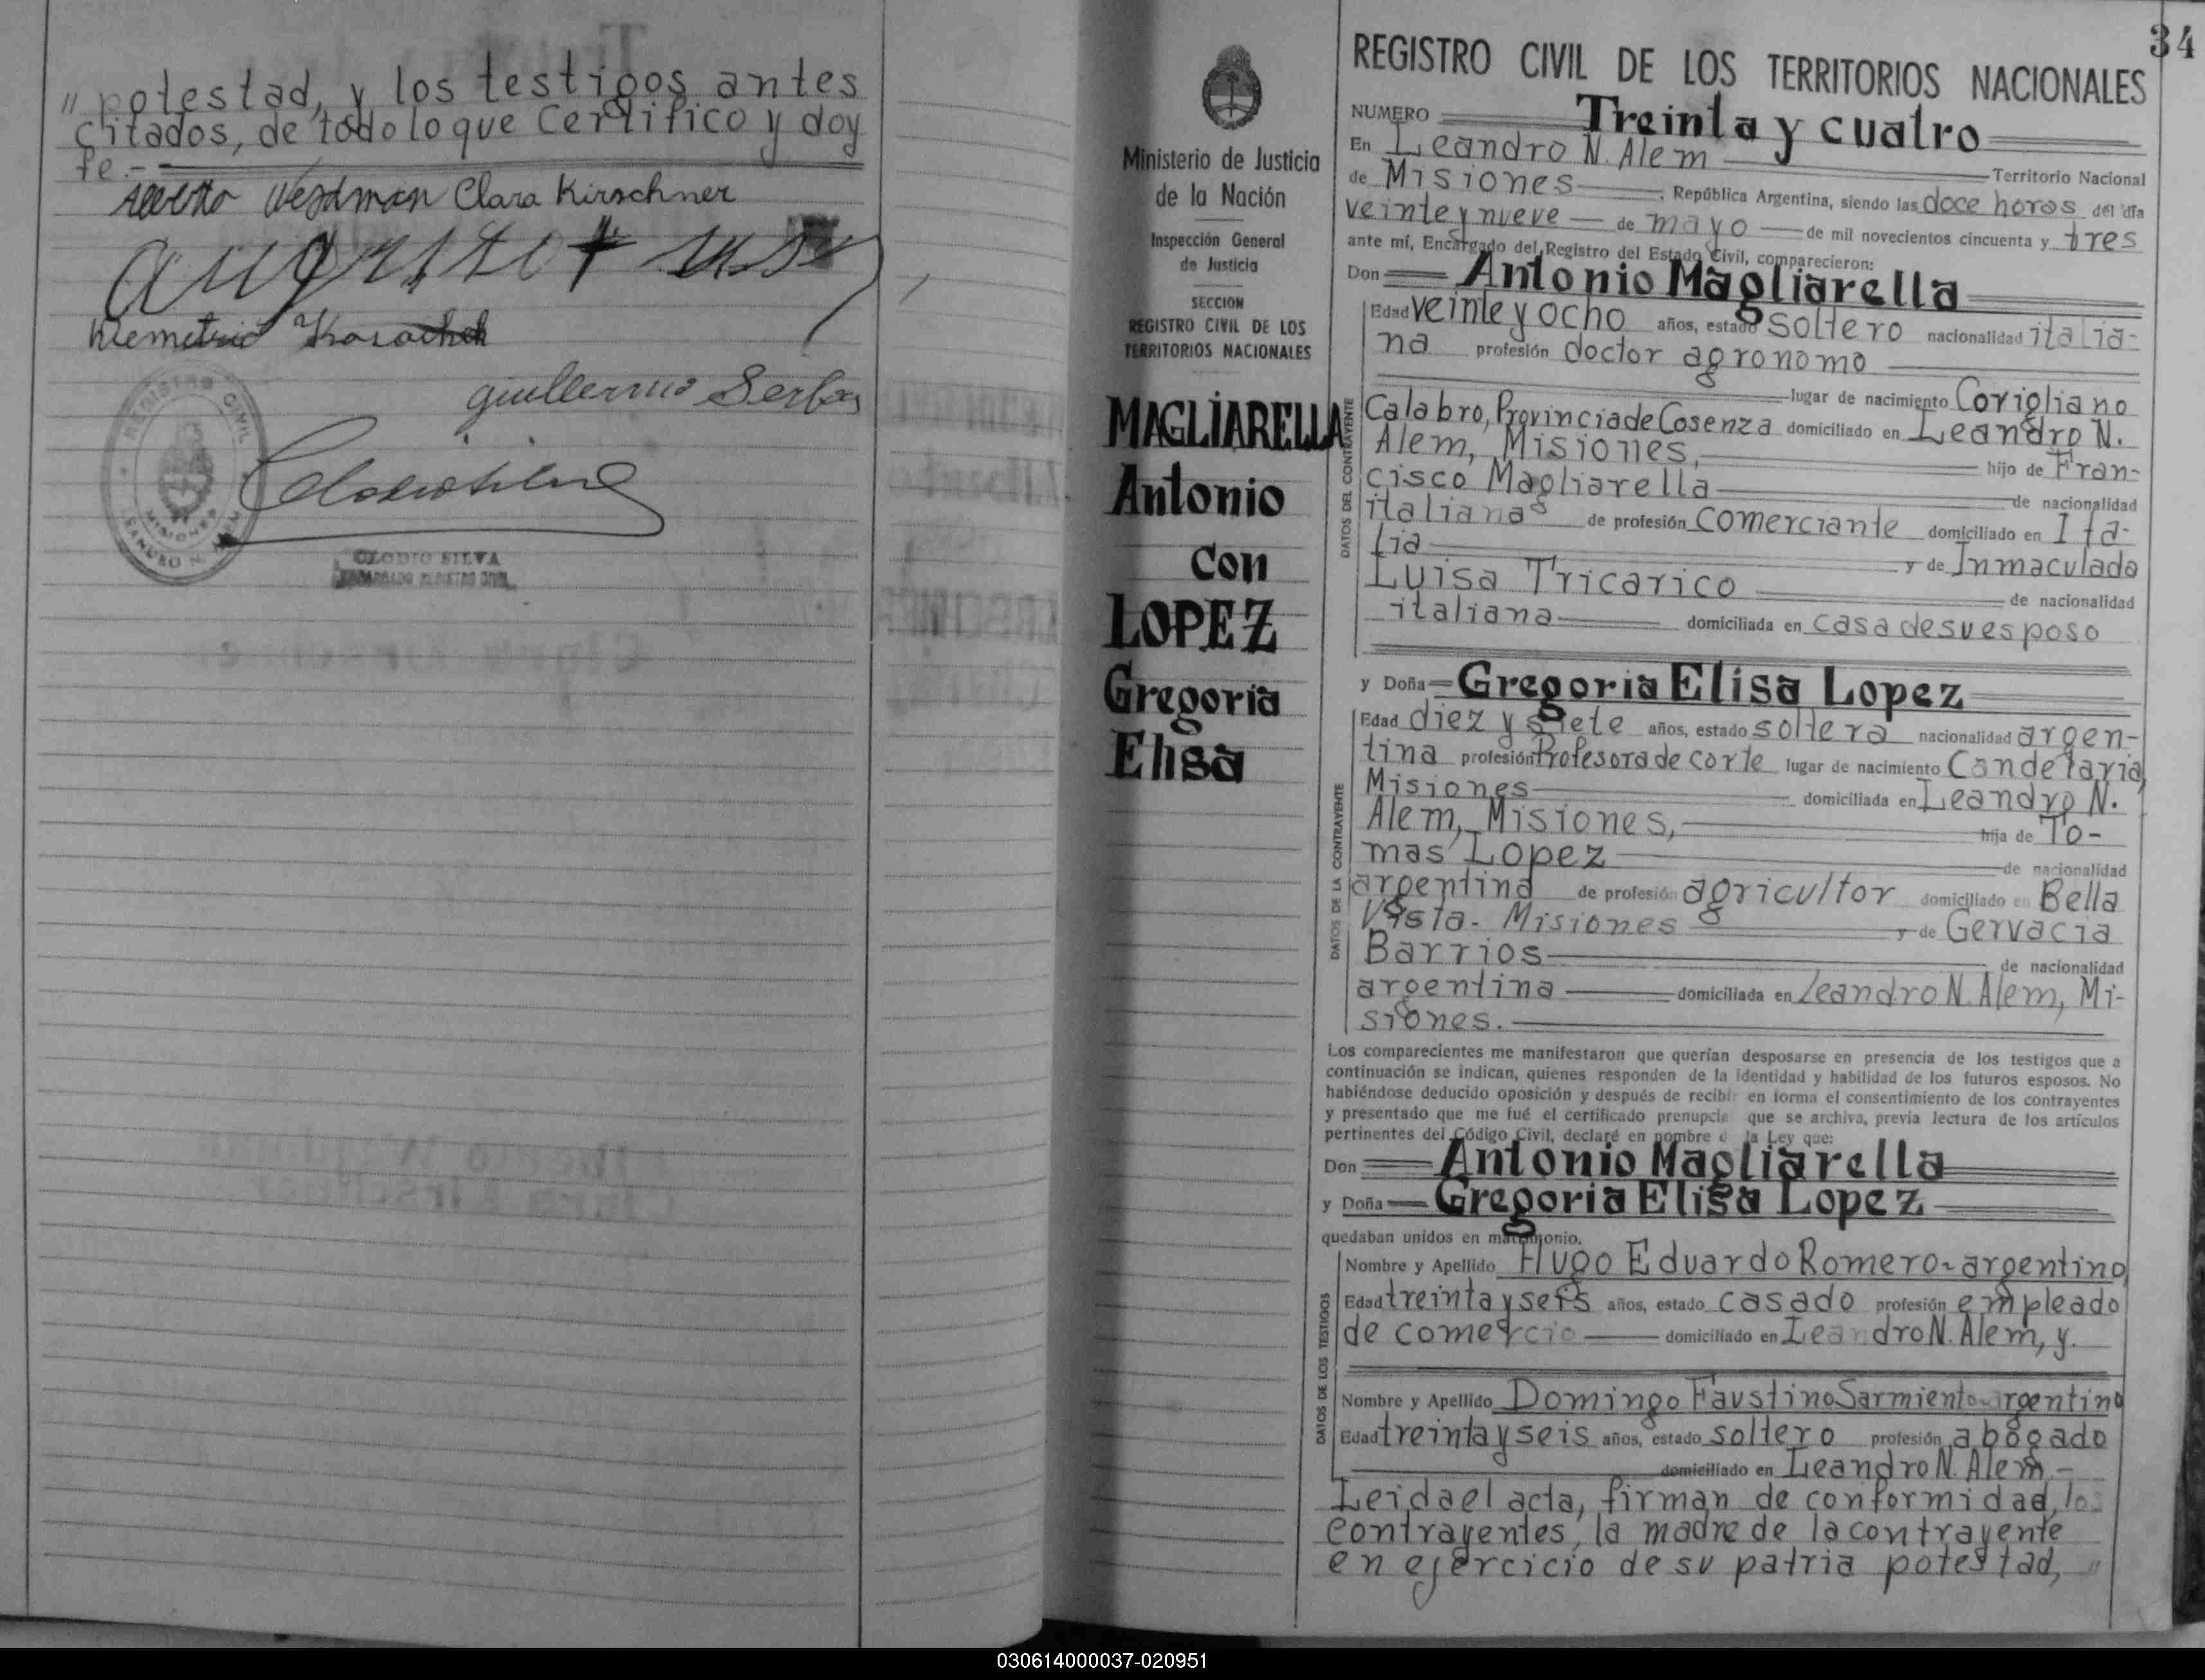 " potestad, y los testigos antes
citados, de todo lo que Certifico y doy
fe.-
Clara Kirschner
guillermo
REGISTRO CIVIL
MISIONES
LEANDRO N. ALEM
CLODIO SILVA
ENCARGADO REGISTRO CIVIL
34
Ministerio de Justicia
de la Nación
Inspección General
de Justicia
SECCION
REGISTRO CIVIL DE LOS
TERRITORIOS NACIONALES
MAGLIARELLA
Antonio
con
LOPEZ
Gregoria
Elisa
REGISTRO CIVIL DE LOS TERRITORIOS NACIONALES
NUMERO Treinta y cuatro
En Leandro N. Alem Territorio Nacional
de Misiones, República Argentina, siendo las doce horas del día
veinte y nueve de mayo de mil novecientos cincuenta y tres
ante mí, Encargado del Registro del Estado Civil, comparecieron:
Don Antonio Magliarella
DATOS DEL CONTRAYENTE
Edad veinte y ocho años, estado soltero nacionalidad italia-
na profesión doctor agronomo
lugar de nacimiento Corigliano
Calabro, Provincia de Cosenza domiciliado en Leandro N.
Alem, Misiones, hijo de Fran-
cisco Magliarella de nacionalidad
italiana de profesión comerciante domiciliado en Ita-
lia y de Inmaculada
Luisa Tricarico de nacionalidad
italiana domiciliada en casa de su esposo
y Doña Gregoria Elisa Lopez
DATOS DE LA CONTRAYENTE
Edad diez y siete años, estado soltera nacionalidad argen-
tina profesión Profesora de corte lugar de nacimiento Candelaria,
Misiones domiciliada en Leandro N.
Alem, Misiones, hija de To-
mas Lopez de nacionalidad
argentina de profesión agricultor domiciliado en Bella
Vista- Misiones y de Gervacia
Barrios de nacionalidad
argentina domiciliada en Leandro N. Alem, Mi-
siones.
Los comparecientes me manifestaron que querían desposarse en presencia de los testigos que a
continuación se indican, quienes responden de la identidad y habilidad de los futuros esposos. No
habiéndose deducido oposición y después de recibir en forma el consentimiento de los contrayentes
y presentado que me fué el certificado prenupcial que se archiva, previa lectura de los artículos
pertinentes del Código Civil, declaré en nombre de la Ley que:
Don Antonio Magliarella
y Doña Gregoria Elisa Lopez
quedaban unidos en matrimonio.
DATOS DE LOS TESTIGOS
Nombre y Apellido Hugo Eduardo Romero- argentino
Edad treinta y seis años, estado casado profesión empleado
de comercio domiciliado en Leandro N. Alem, y.
Nombre y Apellido Domingo Faustino Sarmiento- argentino
Edad treinta y seis años, estado soltero profesión abogado
domiciliado en Leandro N. Alem.-
Leida el acta, firman de conformidad, los
contrayentes, la madre de la contrayente
en ejercicio de su patria potestad, "
030614000037-020951